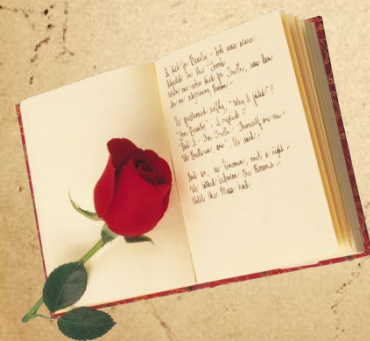 I died for Beauty - but was scarce
Adjusted in the Tomb
When one who died for Truth, was lain
In an adjoining Room -
He questioned softly, "Why I failed"?
"For Beauty", I replied -
"And I - for Truth - Themself are one -
We Bretheren are", He said -
And so, as Kinsmen, met a night -
We talked between the Rooms -
Until the Moss had